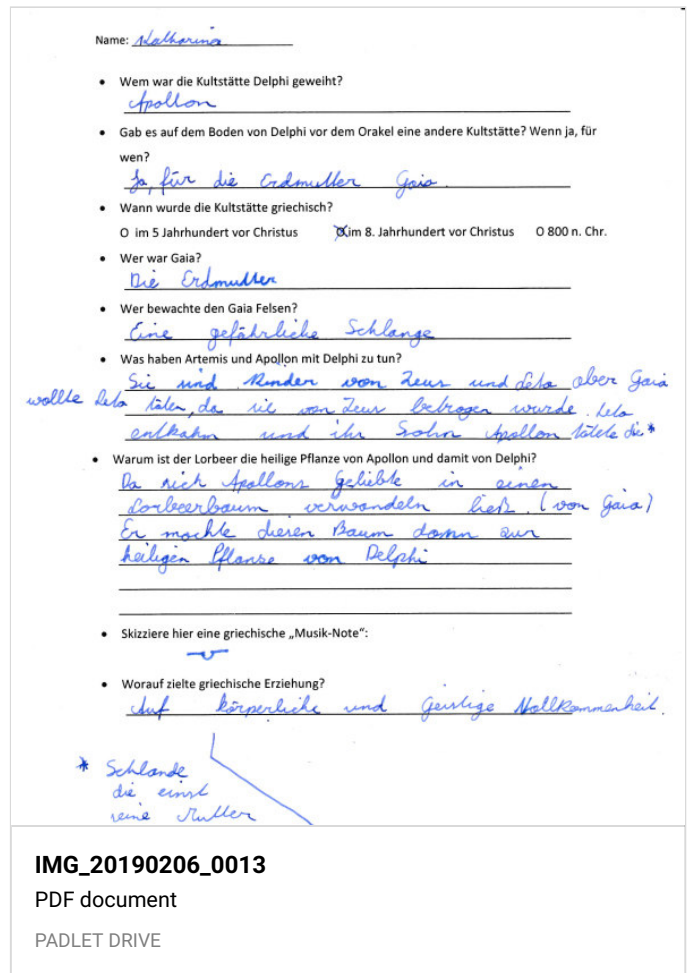 Name: Katharina
• Wem war die Kultstätte Delphi geweiht?
Apollon
• Gab es auf dem Boden von Delphi vor dem Orakel eine andere Kultstätte? Wenn ja, für
wen?
Ja, für die Erdmutter Gaia.
• Wann wurde die Kultstätte griechisch?
O im 5 Jahrhundert vor Christus Ⓧ im 8. Jahrhundert vor Christus O 800 n. Chr.
• Wer war Gaia?
Die Erdmutter
• Wer bewachte den Gaia Felsen?
Eine gefährliche Schlange
• Was haben Artemis und Apollon mit Delphi zu tun?
Sie sind Kinder von Zeus und Leto aber Gaia
wollte Leto töten, da sie von Zeus betrogen wurde. Leto
entkahm und ihr Sohn Apollon tötete die *
• Warum ist der Lorbeer die heilige Pflanze von Apollon und damit von Delphi?
Da sich Apollons Geliebte in einen
Lorbeerbaum verwandeln ließ. (von Gaia)
Er machte diesen Baum dann zur
heiligen Pflanze von Delphi
• Skizziere hier eine griechische „Musik-Note“:
• Worauf zielte griechische Erziehung?
Auf körperliche und Geistige Vollkommenheit.
* Schlande
die einst
seine Mutter
IMG_20190206_0013
PDF document
PADLET DRIVE